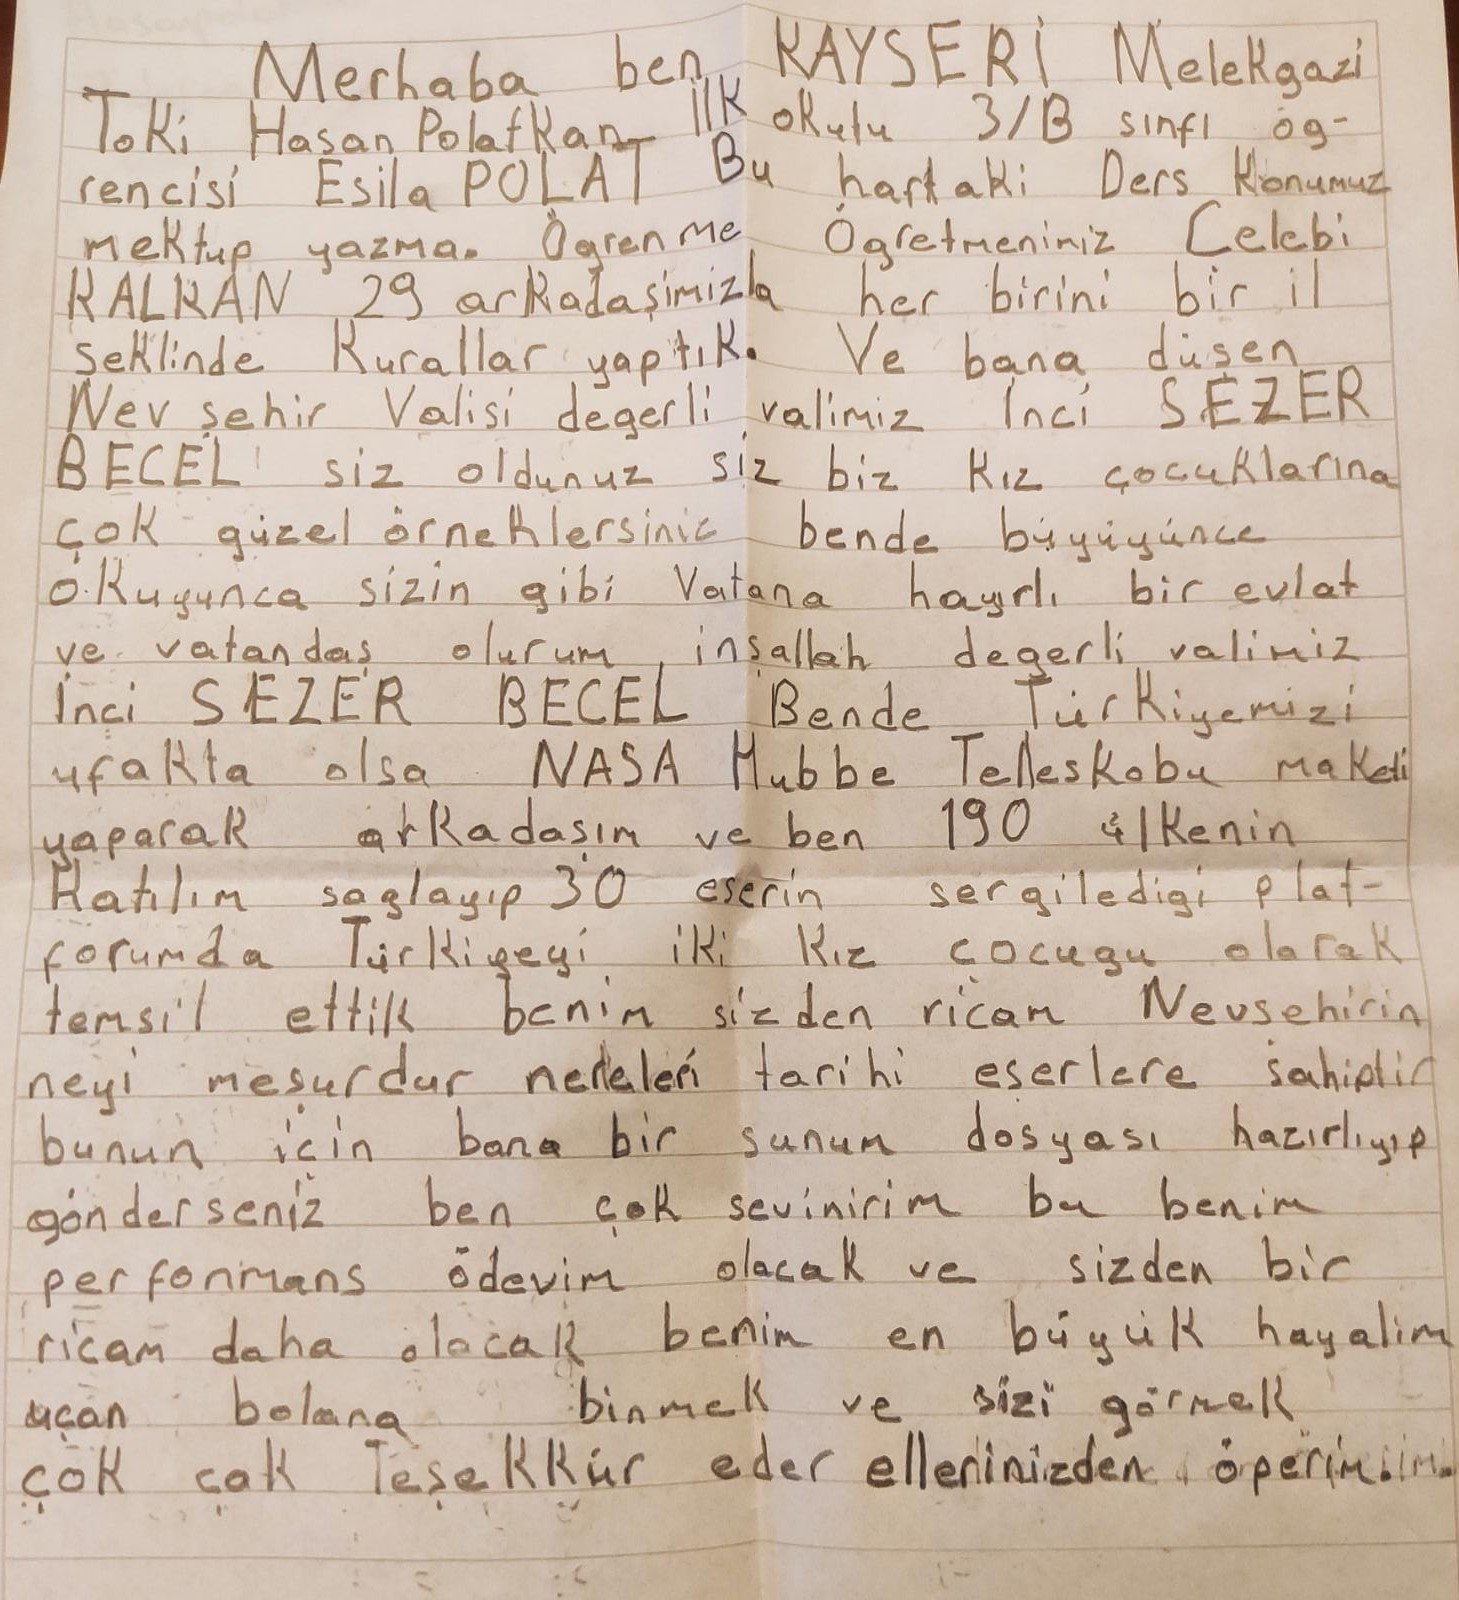 Merhaba ben KAYSERİ Melekgazi
Toki Hasan Polatkan İlk okulu 3/B sınfı ög-
rencisi Esila POLAT Bu haftaki Ders Konumuz
mektup yazma. Ögrenme Ögretmenimiz Celebi
KALKAN 29 arkadaşimizla her birini bir il
seklinde Kurallar yaptık. Ve bana düşen
Nev şehir Valisi degerli valimiz İnci SEZER
BECEL siz oldunuz siz biz kız çocuklarına
çok güzel örneklersiniz bende büyüyünce
okuyunca sizin gibi Vatana hayırlı bir evlat
ve vatandaş olurum inşallah degerli valimiz
İnci SEZER BECEL Bende Türkiyemizi
ufakta olsa NASA Hubbe Telleskobu maketi
yaparak arkadaşım ve ben 190 ülkenin
Katılım saglayıp 30 eserin sergiledigi plat-
forumda Türkiyeyi iki kız çocugu olarak
temsil ettik benim sizden ricam Nevsehirin
neyi meşurdur nereleri tarihi eserlere sahiptir
bunun için bana bir sunum dosyası hazırlıyıp
gönderseniz ben çok sevinirim bu benim
perfonmans ödevim olacak ve sizden bir
ricam daha olacak benim en büyük hayalim
uçan bolana binmek ve sizi görmek
çok çok Teşekkür eder ellerinizden öperim.